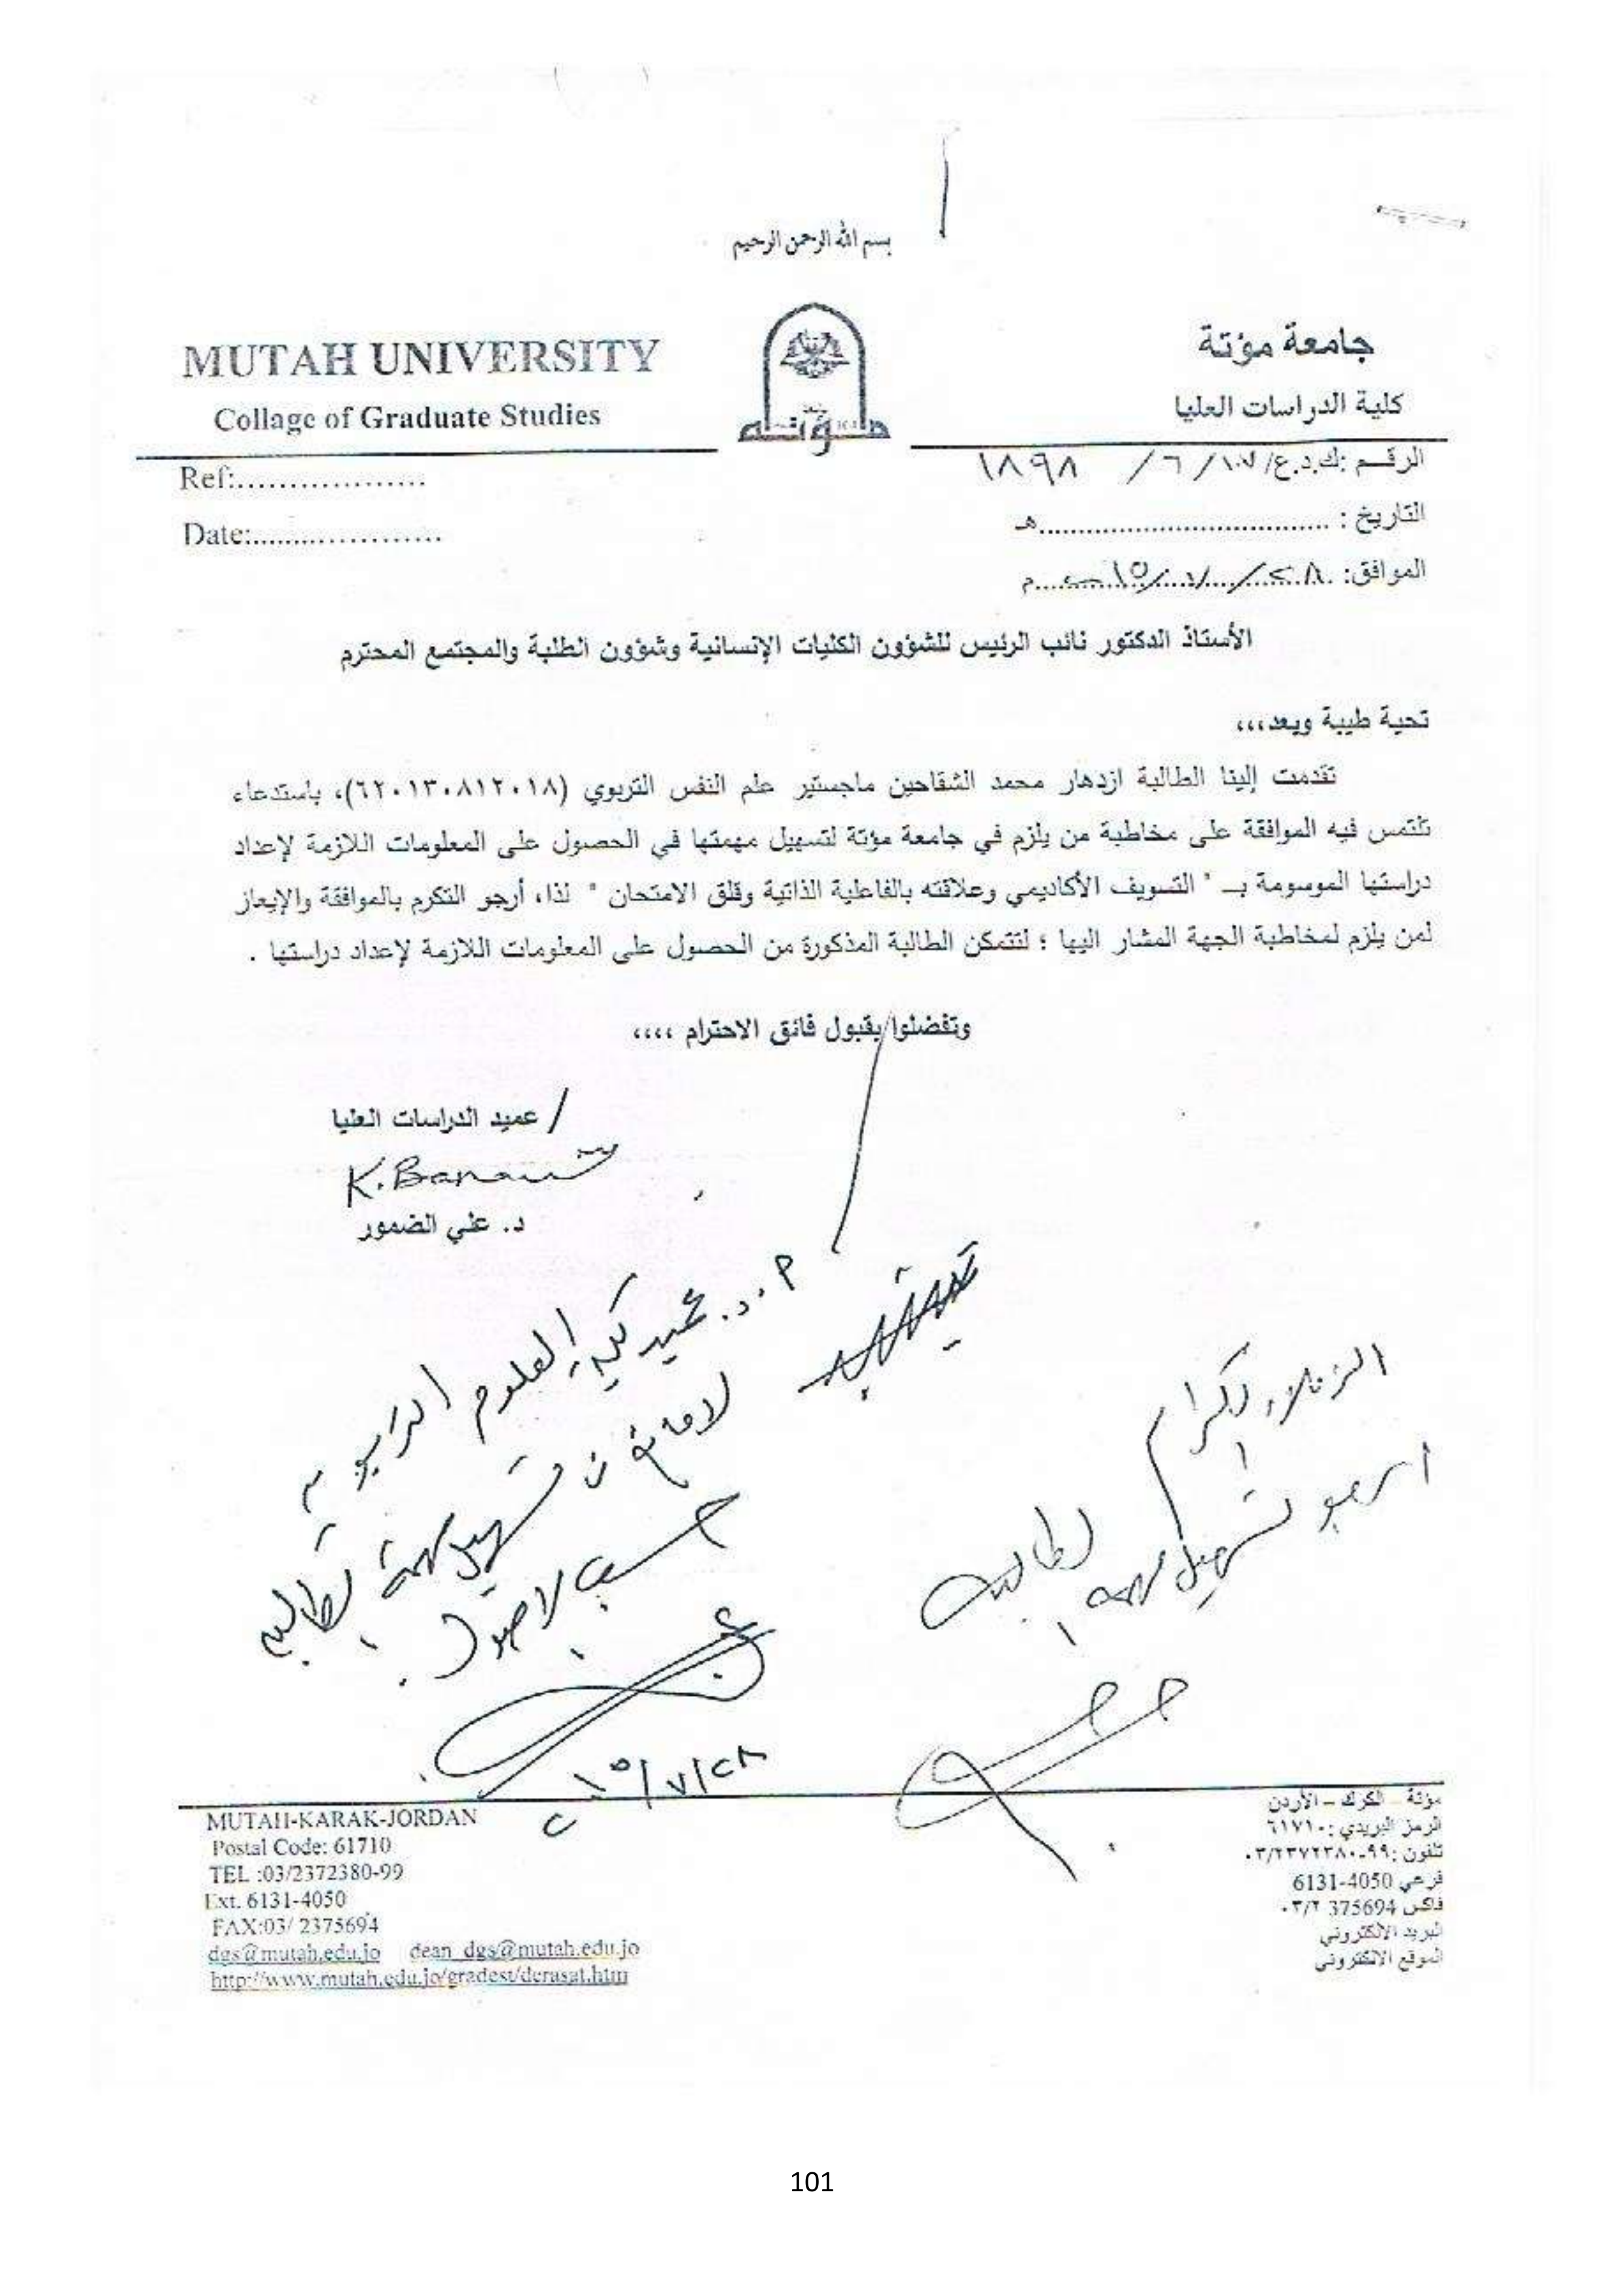 بسم الله الرحمن الرحيم
MUTAH UNIVERSITY
Collage of Graduate Studies
جامعة مؤتة
كلية الدراسات العليا
Ref:..................
Date:.....................
الرقم :ك.د.ع/١٠٧/ ٦/ ١٨٩٨
التاريخ : .................................... هـ
الموافق: ٢٨/٧/٢٠١٥ م
الأستاذ الدكتور نائب الرئيس للشؤون الكليات الإنسانية وشؤون الطلبة والمجتمع المحترم
تحية طيبة وبعد،،،
تقدمت إلينا الطالبة ازدهار محمد الشقاحين ماجستير علم النفس التربوي (٦٢٠١٣٠٨١٢٠١٨)، باستدعاء
تلتمس فيه الموافقة على مخاطبة من يلزم في جامعة مؤتة لتسهيل مهمتها في الحصول على المعلومات اللازمة لإعداد
دراستها الموسومة بـ " التسويف الأكاديمي وعلاقته بالفاعلية الذاتية وقلق الامتحان " لذا، أرجو التكرم بالموافقة والإيعاز
لمن يلزم لمخاطبة الجهة المشار اليها ؛ لتتمكن الطالبة المذكورة من الحصول على المعلومات اللازمة لإعداد دراستها .
وتفضلوا بقبول فائق الاحترام ،،،،
/ عميد الدراسات العليا
د. علي الضمور
أ.د. عميد كلية العلوم التربوية
لا مانع من تسهيل مهمة الطالبة
حسب الاصول.
٢٠١٥/٧/٢٨
الزملاء الكرام
ارجو تسهيل مهمة
الطالبة
MUTAH-KARAK-JORDAN
Postal Code: 61710
TEL :03/2372380-99
Ext. 6131-4050
FAX:03/ 2375694
dgs@mutah.edu.jo dean_dgs@mutah.edu.jo
http://www.mutah.edu.jo/gradest/derasat.htm
مؤتة – الكرك – الأردن
الرمز البريدي :٦١٧١٠
تلفون :٩٩-٠٣/٢٣٧٢٣٨٠
فرعي 4050-6131
فاكس 375694 ٠٣/٢
البريد الالكتروني
الموقع الالكتروني
101